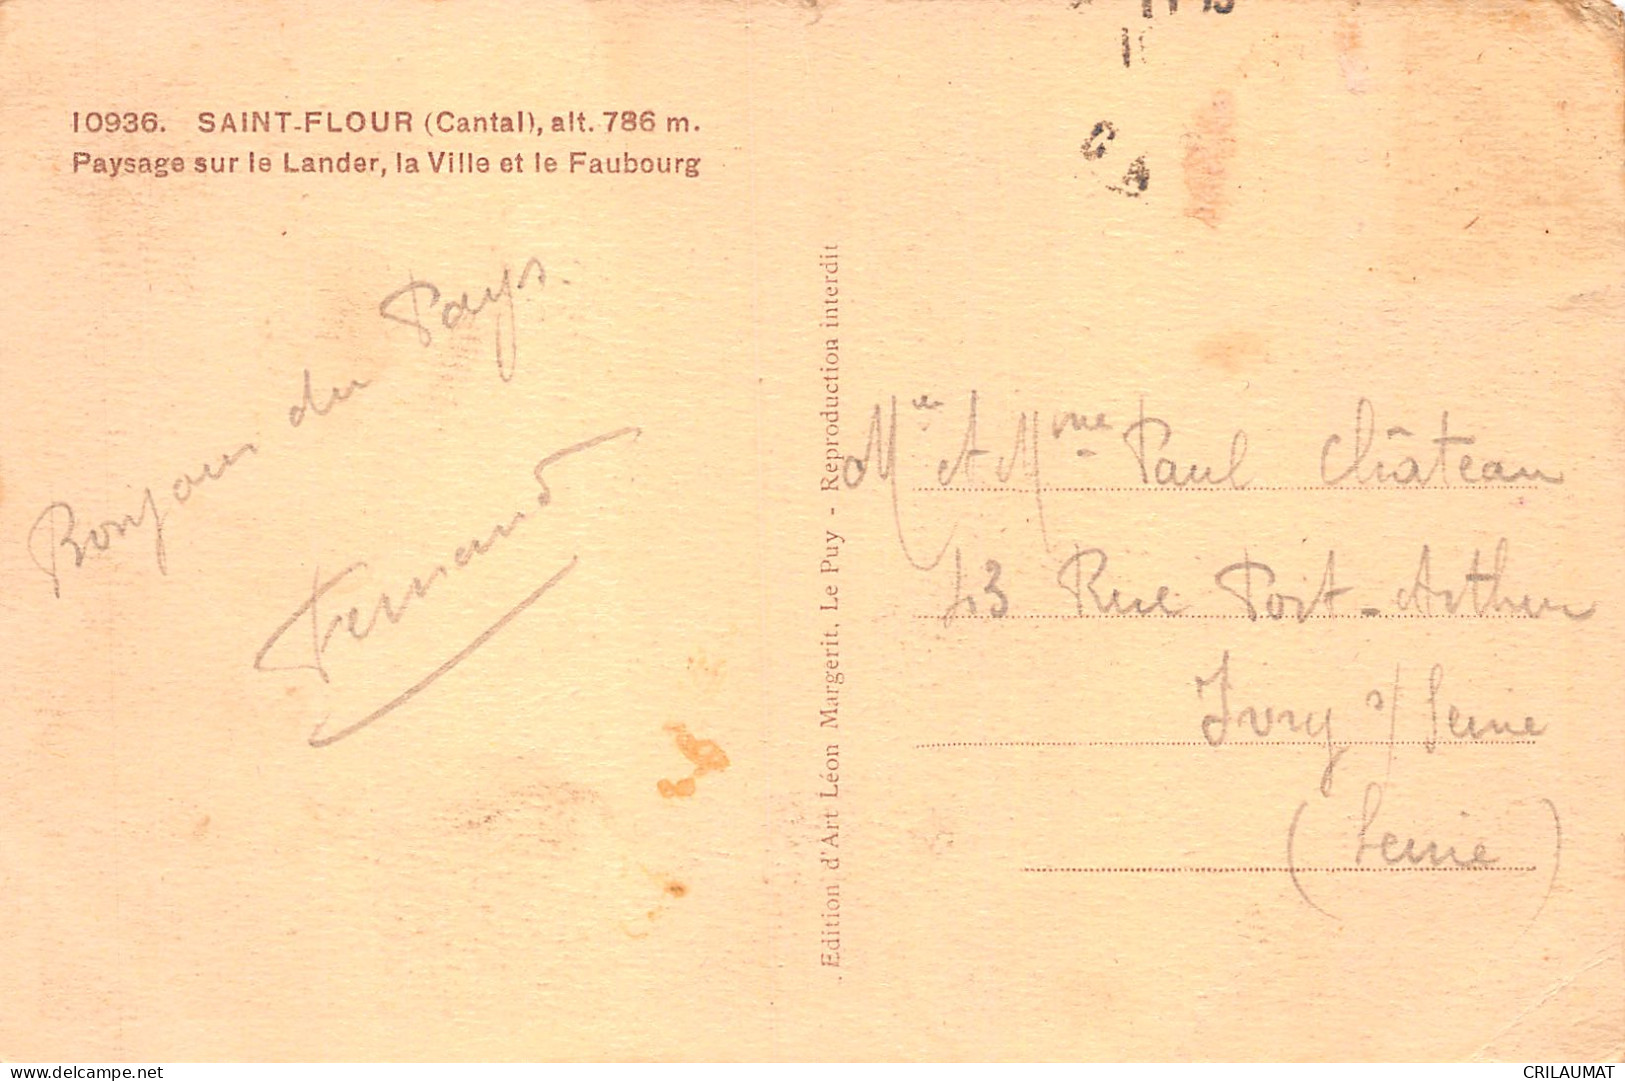 10936. SAINT-FLOUR (Cantal), alt. 786 m.
Paysage sur le Lander, la Ville et le Faubourg
Bonjour du Pays.
Fernand
Edition d'Art Léon Margerit, Le Puy - Reproduction interdit
Mr et Mme Paul Château
43 Rue Port-Arthur
Ivry s/ Seine
(Seine)
CA
delcampe.net
CRILAUMAT